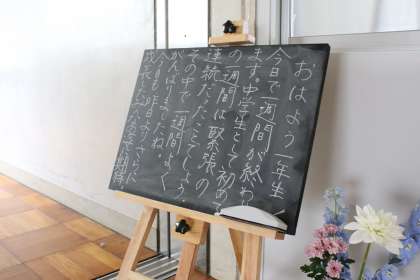 おはよう一年生！
今日で一週間が終わり
ます。中学生として初めて
の一週間は緊張の
連続だったことでしょう。
その中で一週間よく
がんばりましたね。
今日も昨日よりさらに
成長した